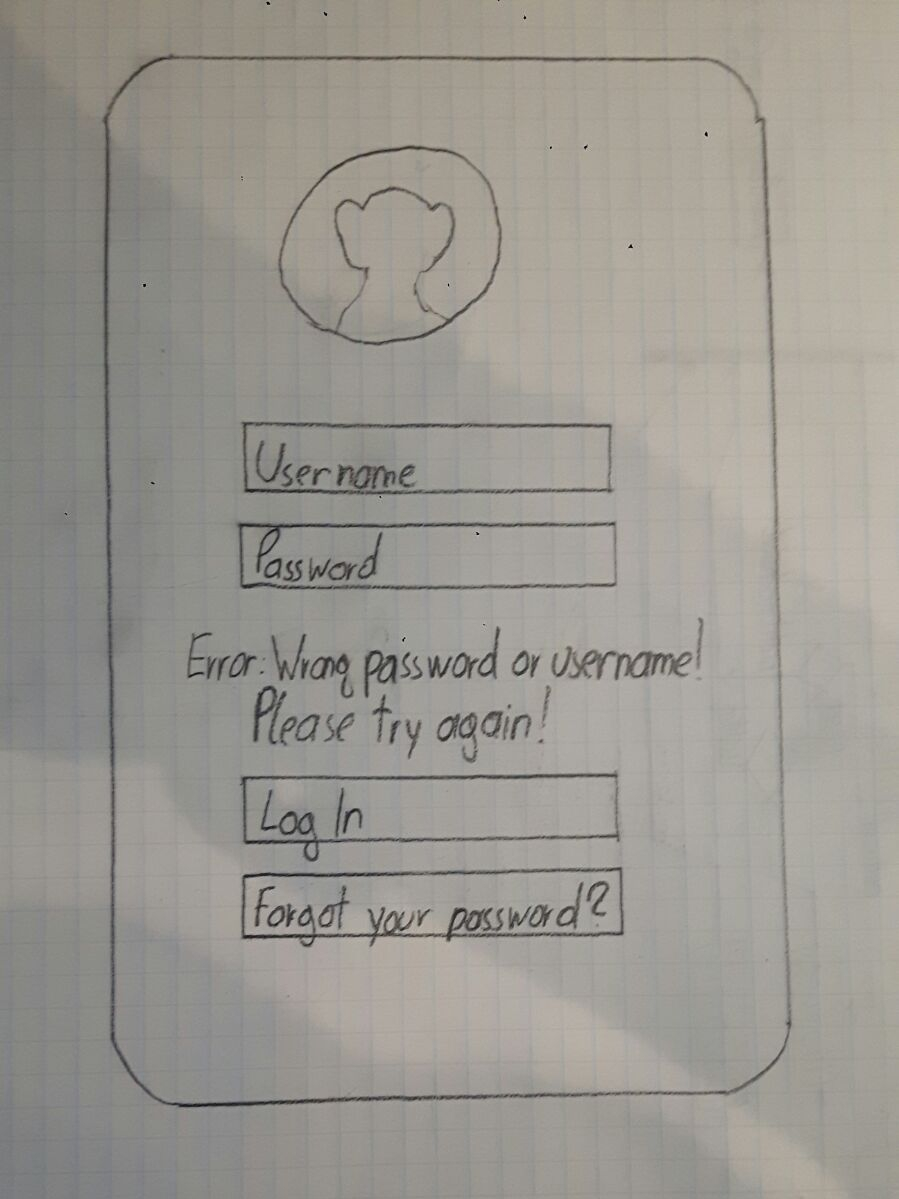 Username
Password
Error: Wrong password or username!
Please try again!
Log In
Forgot your password?